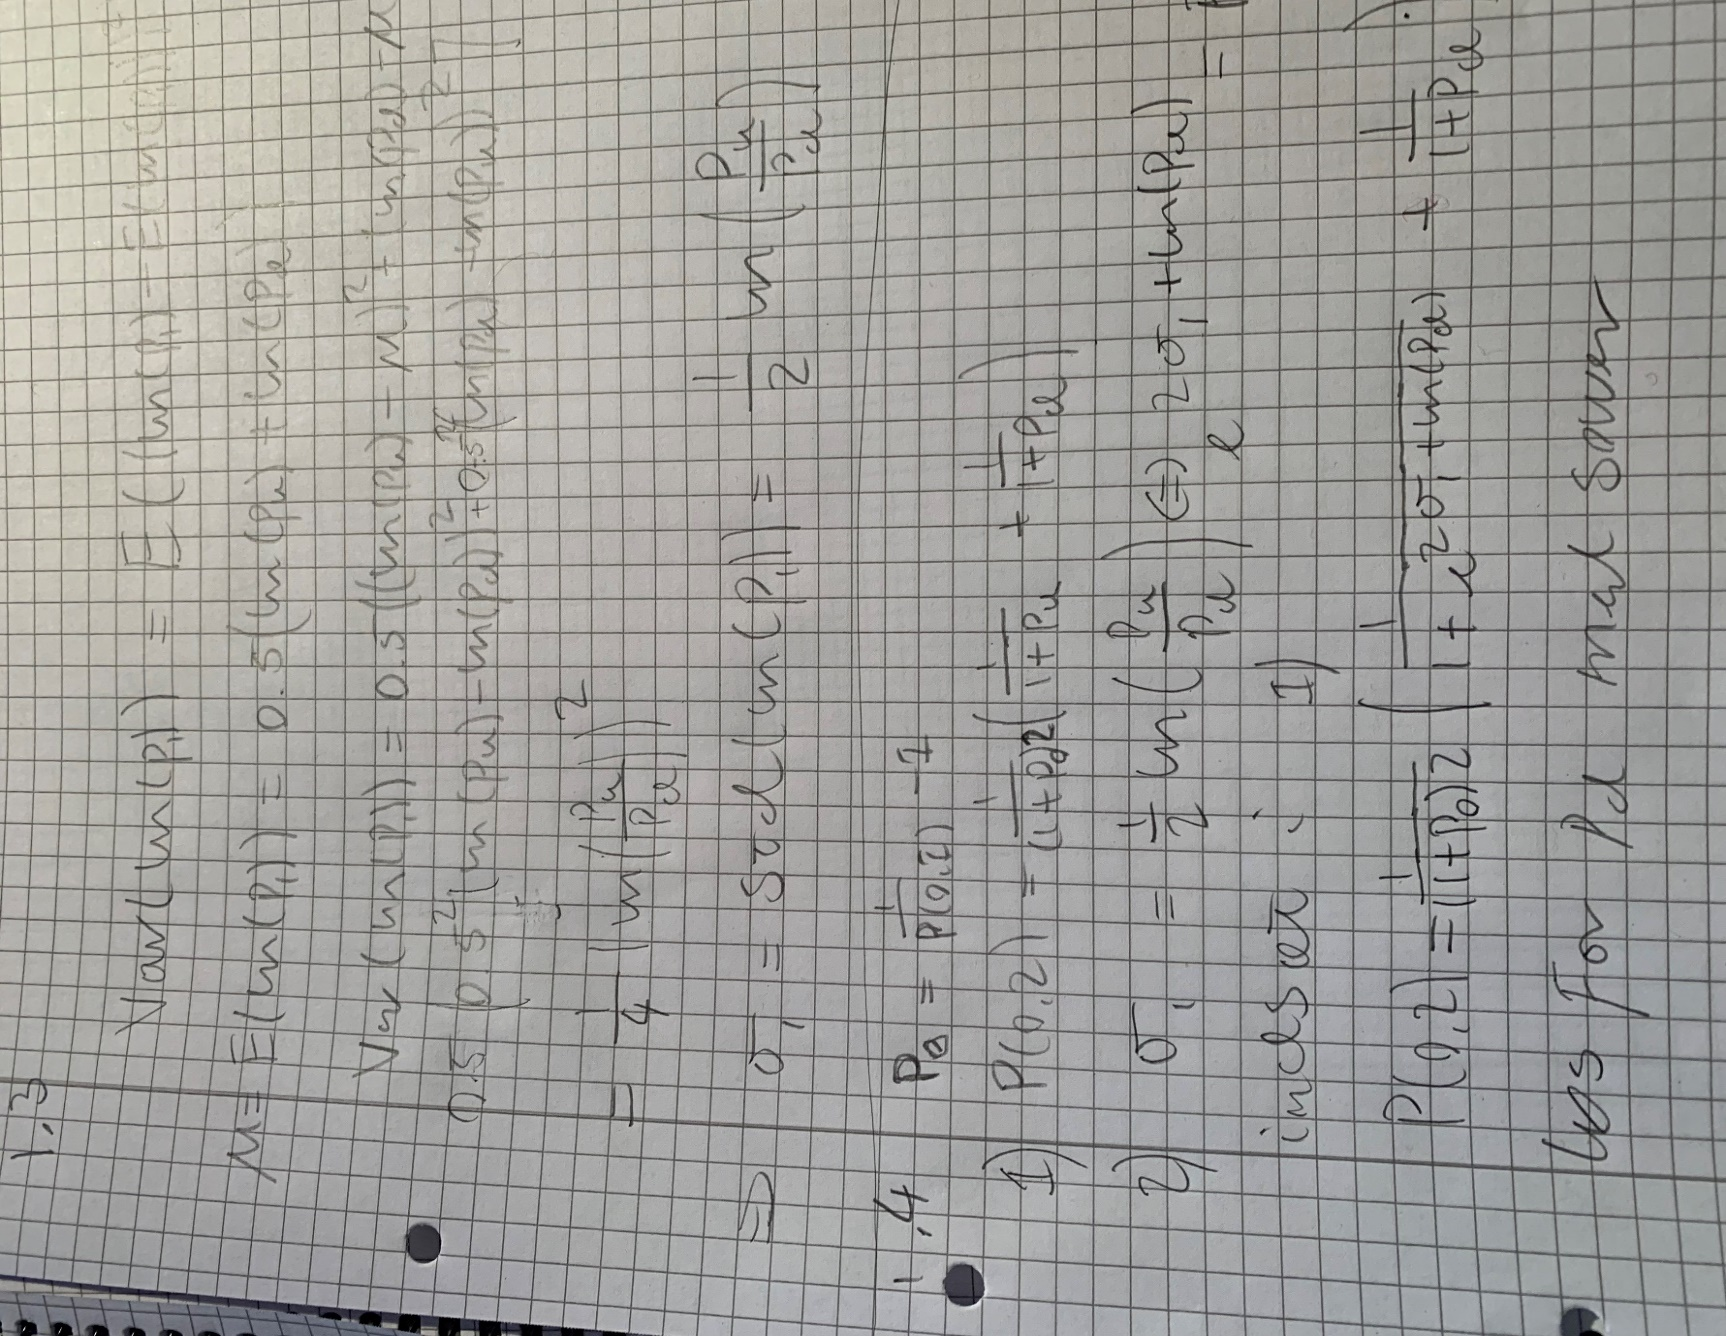 1.3
Var(ln(P₁)) = E((ln(P₁) - E(ln(P₁)))
μ = E(ln(P₁)) = 0.5(ln(Pu) + ln(Pd)
Var(ln(P₁)) = 0.5((ln(Pu) - μ)² + (ln(Pd) - μ
0.5 (0.5²(ln(Pu) - ln(Pd))² + 0.5²(ln(Pd) - ln(Pu))²)
= 1/4 (ln(Pu/Pd))²
=> σ₁ = Std(ln(P₁)) = 1/2 ln(Pu/Pd)
1.4 P₀ = 1/P(0,1) - 1
1) P(0,2) = 1/(1+P₀)2 (1/(1+Pu) + 1/(1+Pd))
2) σ₁ = 1/2 ln(Pu/Pd) (=) e^(2σ₁ + ln(Pd)) =
indsæt i 1)
P(0,2) = 1/((1+P₀)2) (1/(1+e^(2σ₁ + ln(Pd))) + 1/(1+Pd)).
Løs For Pd med Solver